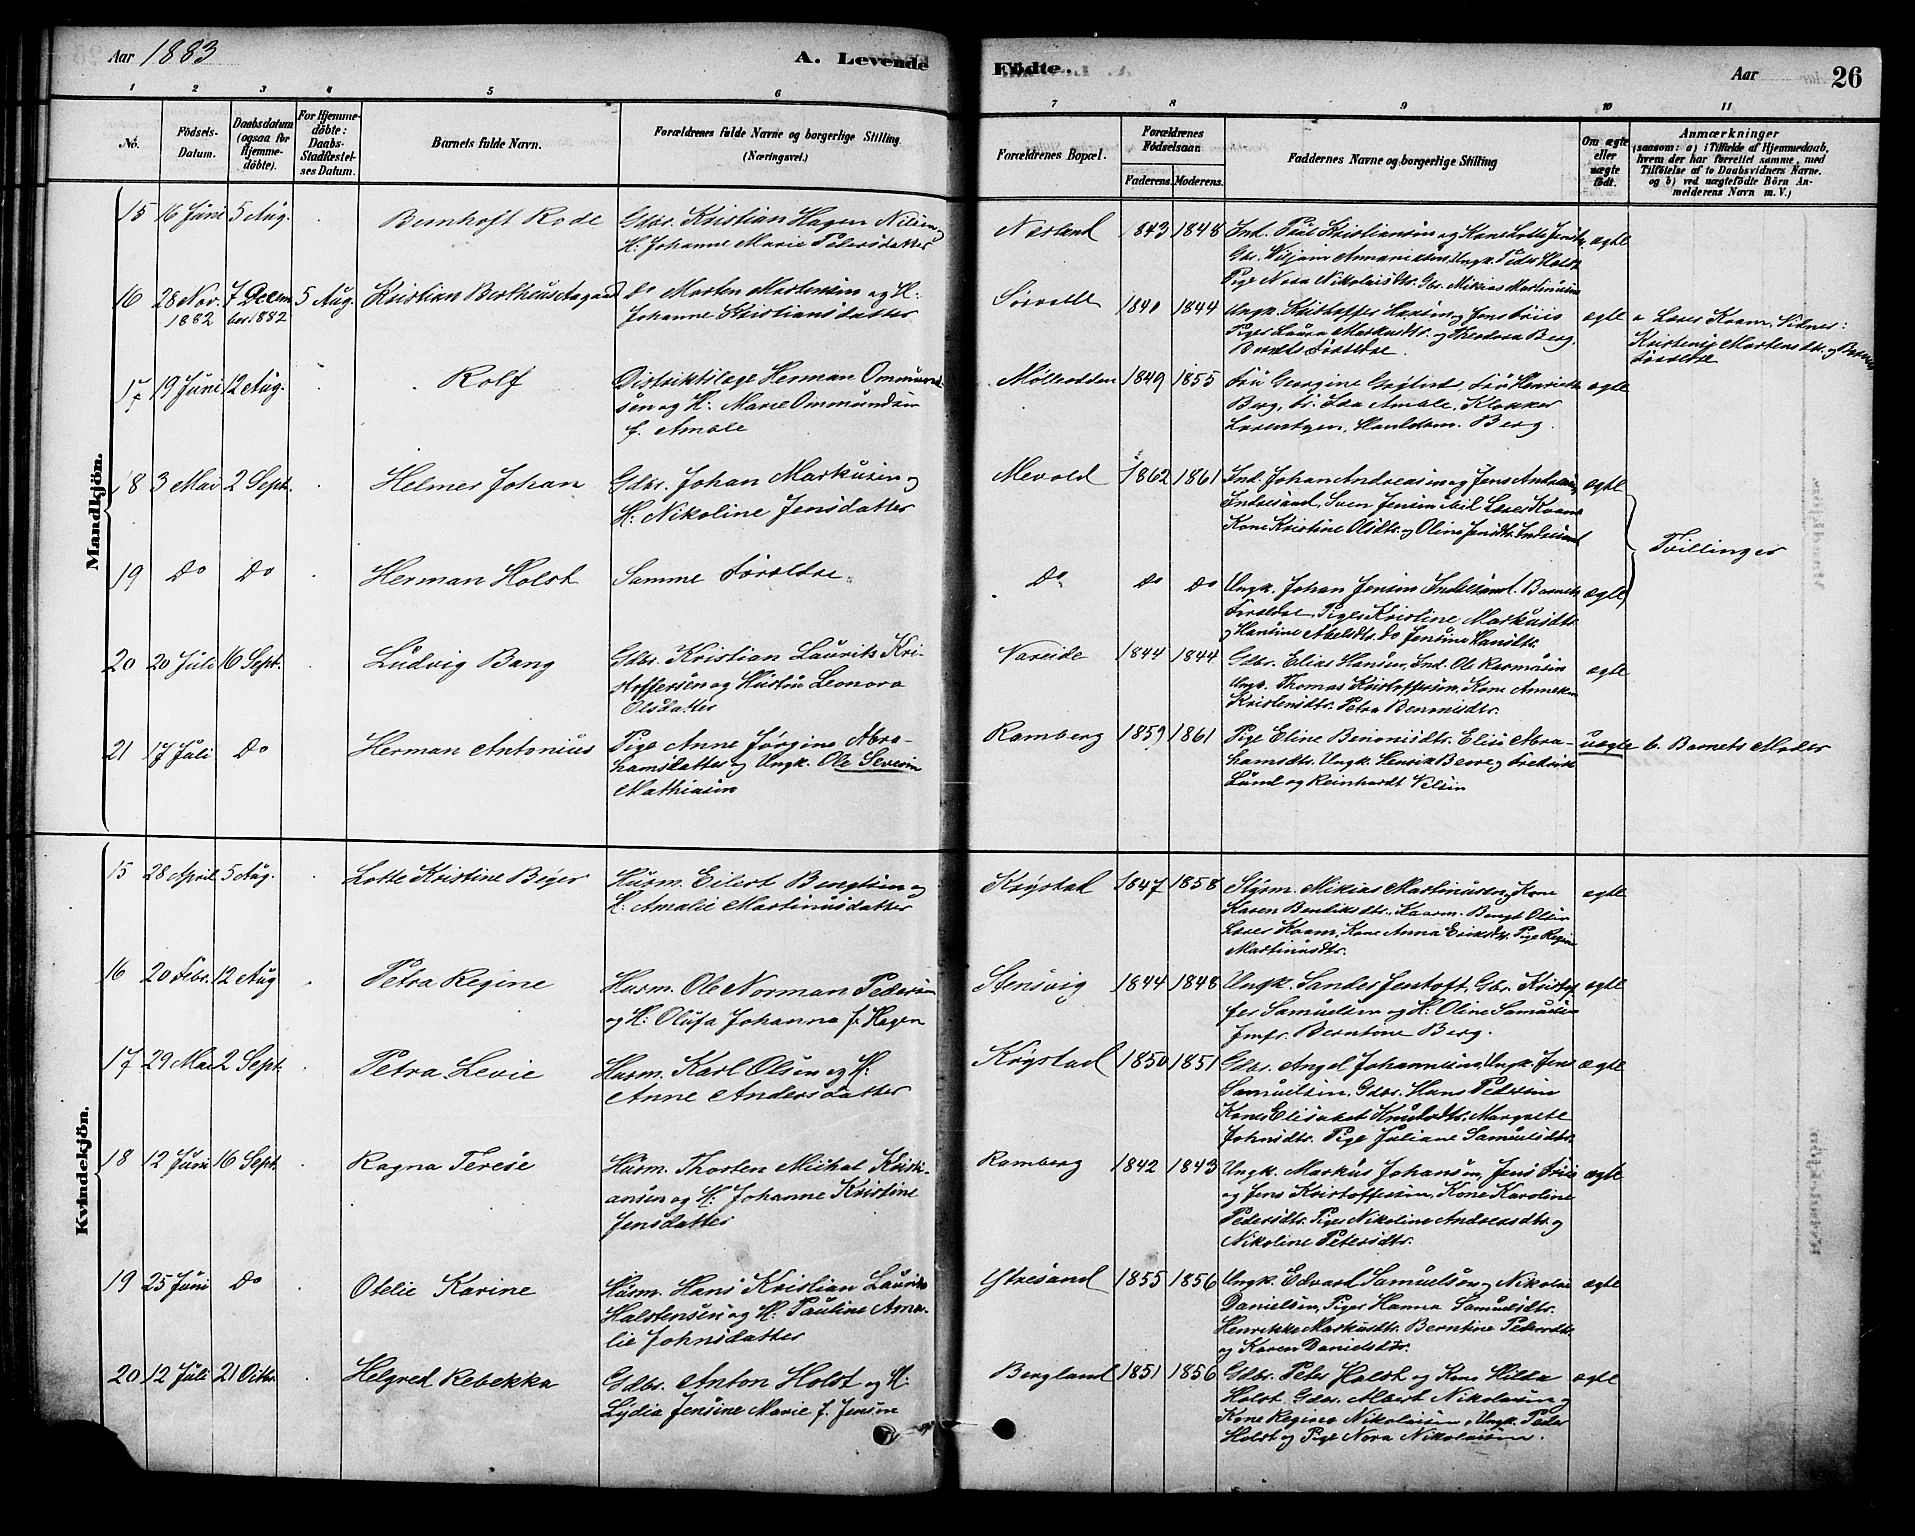 Aar 1883
A. Levende
Födte.
Aar
26
1 2 3 4 5 6 7 8 9 10 11
No.
Födsels-Datum.
Daabsdatum (ogsaa for Hjemmedöbte).
For Hjemmedöbte: Daabs-Stadfæstelses Datum.
Barnets fulde Navn.
Forældrenes fulde Navne og borgerlige Stilling.
(Næringsvei.)
Forældrenes Bopæl.
Forældrenes Födselsaar.
Faderens. Moderens.
Faddernes Navne og borgerlige Stilling
Om ægte eller uægte födt.
Anmærkninger
(saasom: a) i Tilfælde af Hjemmedaab,
hvem der har forrettet samme, med
Tilföielse af to Daabsvidners Navne.
og b) ved uægtefödte Börn An-
melderens Navn m. V.)
Mandkjön.
15 16 Juni 5 Aug. Bernhoft Rode
Gdbr. Kristian Hagen Nilsen og
H: Johanne Marie Petersdatter
Nærland 1843 1848
Ind. Paul Kristiansen og Kone Lotte
Peder Holst
Pige Nora Nikolaisdtr. Gbr. Mikias Martinusen
ægte
16 28 Nov. 1882 7 Decem ber 1882 5 Aug. Kristian Bertheus Aagaard
Do Morten Mortensen og H:
Johanne Kristiansdatter
1840 1844
Ungk. Kristoffer Hansen og Jens Friis
Piger Laura Markusdtr. og Theodora Berg.
Barnets Forældre.
ægte
a Lærer Kaarn. Vidner:
17 19 Juni 12 Aug. Rolf
Distriktslæge Herman Ommund
sen og H: Marie Ommundsen
f. Amble
1849 1855
Fru Georgine
Berg, Fr. Amble, Klokker
Lorentzen, Berg.
ægte
18 3 Mai 2 Sept. Helmer Johan
Gdbr. Johan Markusen og
H: Nikoline Jensdatter
Mevold 1862 1861
Ind. Johan Andreasen og Jens
Kone Kristine Olsdtr. og Oline Jensdtr.
ægte
Tvillinger
19 Do Do Herman Holst
Samme Forældre.
Do Do Do
Ungk. Johan Jensen Barnets
Forældre, Piger Kristine Markusdtr.
og Hansine Abelsdtr. Do Jensine Hansdtr.
ægte
20 20 Juli 16 Sept. Ludvig Bang
Gdbr. Kristian Laurits Kri-
stoffersen og Hustru Leonora
Olsdatter
Nareide 1844 1844
Gdbr. Elias Hansen, Ind. Ole Rasmusen
Ungk. Thomas Kristoffersen, Kone Anneken
Kristensdtr. Petra Benonisdtr.
ægte
21 17 Juli Do Herman Antonius
Pige Anne Jørgine Abra-
hamsdatter og Ungk. Ole Severin
Mathiasen
Ramberg 1859 1861
Pige Eline Benonisdtr. Elise Abra-
hamsdtr. Ungk. Henrik og Fredrik
Lund og Reinhardt Nilsen
uægte
b. Barnets Moder
Kvindekjön.
15 28 April 5 Aug. Lotte Kristine Beyer
Husm. Eilert Bengtsen og
H: Amalie Martinusdatter
Krystad 1847 1858
Styrm. Mikias Martinusen, Kone
Karen Bendiksdtr. Bengt Olsen
Lærer Kaarn, Kone Anna Eriksdtr. Pige Regine
Martinusdtr.
ægte
16 20 Febr. 12 Aug Petra Regine
Husm. Ole Norman Pedersen
og H: Olufa Johanna f. Hagen
Stensvig 1844 1848
Ungk. Sander Jentoft, Gbr. Kristof
fer Samuelsen og H: Oline Samuelsen
Jmfr. Berntine Berg.
ægte
17 29 Mai 2 Sept. Petra Levie
Husm. Karl Olsen og H:
Anne Andersdatter
Krystad 1850 1851
Gdbr. Angel Johannesen, Ungk. Jens
Samuelsen, Gdbr. Hans Pedersen
Koner Elisabet Knudsdtr. Margrete
Johnsdtr. Pige Juliane Samuelsdtr.
ægte
18 12 Juni 16 Sept. Ragna Terese
Husm. Thorsten Michal Kristi-
ansen og H: Johanne Kristine
Jensdatter
Ramberg 1842 1843
Ungk. Markus Johansen, Jens Friis
og Jens Kristoffersen, Kone Karoline
Pedersdtr. Piger Nikoline Andreasdtr. og
Nikoline Petersdtr.
ægte
19 25 Juni Do Otelie Karine
Husm. Hans Kristian Laurits
Halstensen og H: Pauline Ama-
lie Johnsdatter
Ytresand 1855 1856
Ungk. Edvard Samuelsen og Nikolai
Danielsen, Piger Hanna Samuelsdtr.
Henrikke Markusdtr. Berntine Pedersdtr.
og Karen Danielsdtr.
ægte
20 12 Juli 21 Octbr. Helgred Rebekka
Gdbr. Anton Holst og H:
Lydia Jensine Marie f. Jensen
Bergland 1851 1856
Gdbr. Peter Holst og Kone Hilda
Holst. Gdbr. Albert Nikolaisen og
Kone Regine Nikolaisen, Ungk. Peder
Holst og Pige Nora Nikolaisen.
ægte